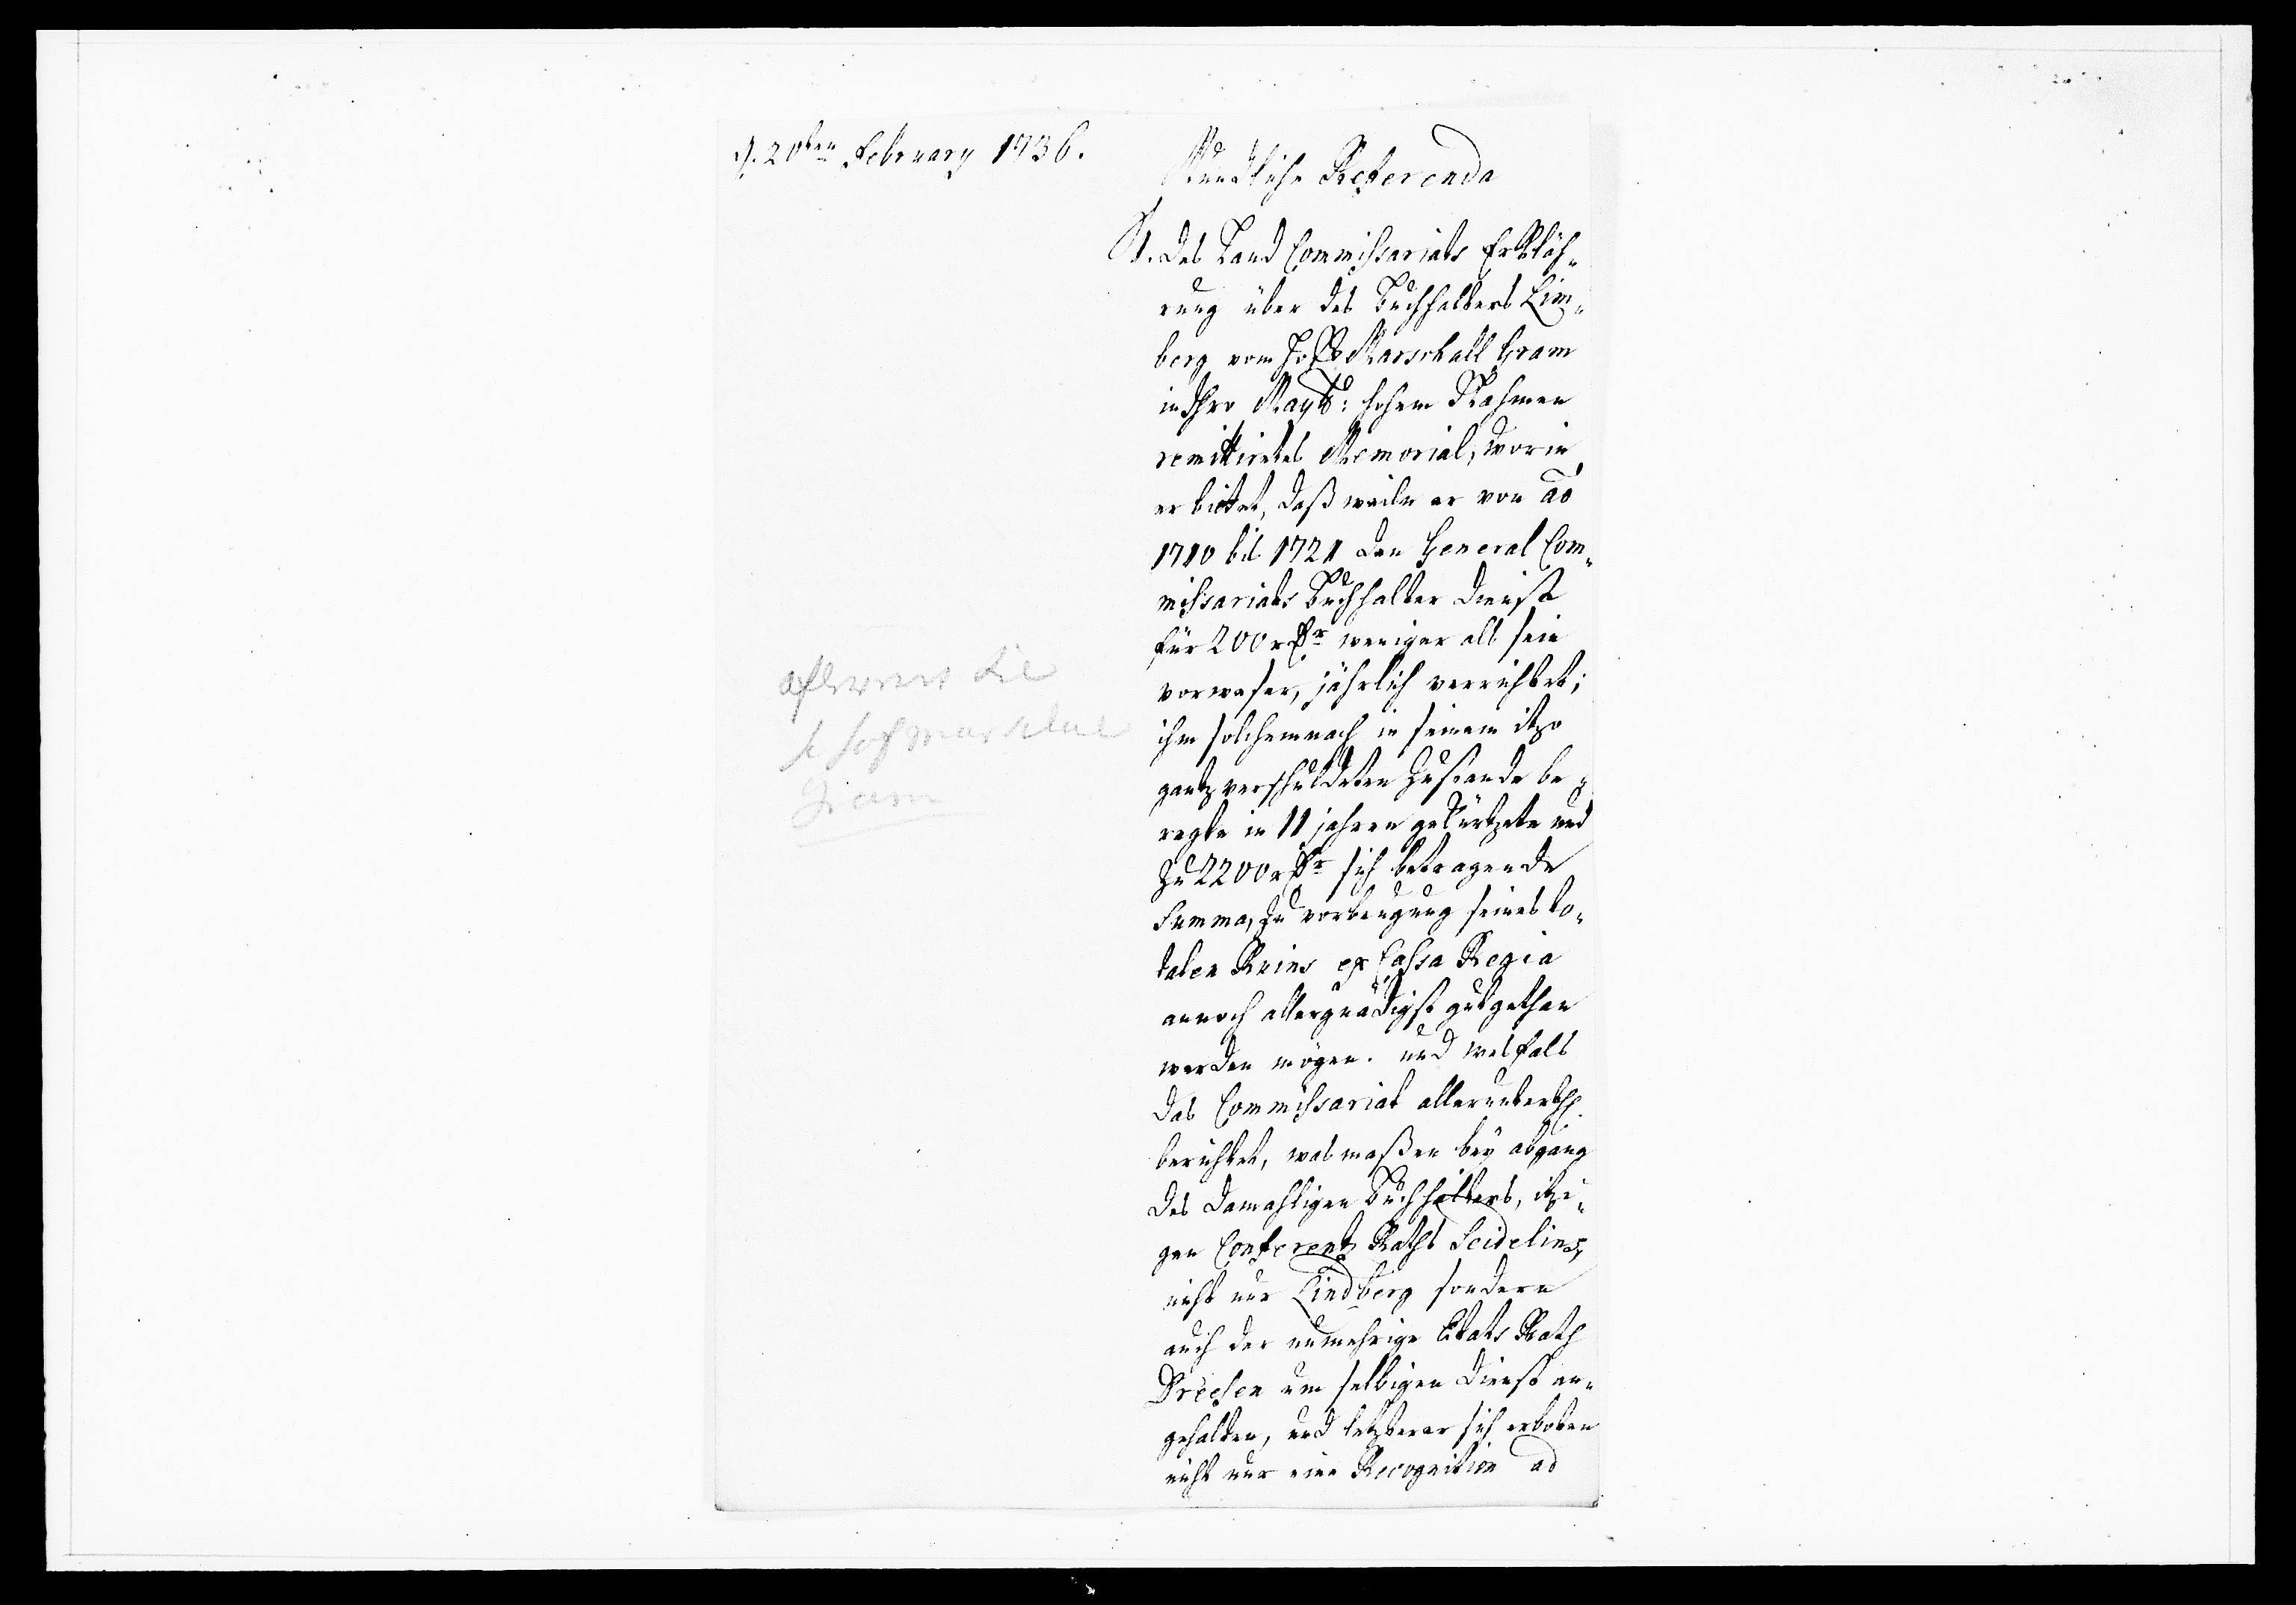 d. 20ten February 1736.
Mündliche Referenda
1. Des Land Commissariats Erkläh„
rung über des Buchhalters Lim„
berg vom Hoff Marschall Gram
in Ihro Maytt: hohem Nahmen
remittirtes Memorial, worin
er bittet, daß weiln er von ao
1710 bis 1721 den General Com„
missariats Buchhalter Dienst
für 200 rdr weniger als sein
vorweser, jährlich verrichtet;
ihm solchemnach in seinem itzo
gantz verschuldeten Zustande be„
regte in 11 jahren gekürtzete und
zu 2200 rdr sich betragende
Summa, zu vorbeugung seines to„
talen Ruins ex Cassa Regia
annoch allergnädigst gutgethan
werden mögen. und wesfals
das Commissariat alleruntertl.
berichtet, was maßen bey abgang
des damahligen Buchhalters, itzi„
gen Conferentz Raths Seidelins,
nicht nur Lindberg sondern
auch der nunmehrige Etats Rath
Dreesen um selbigen Dienst an„
gehalten, und letzterer sich erboten
nicht nur eine Recognition ad
afleveret til
h hofmarskal
Gram